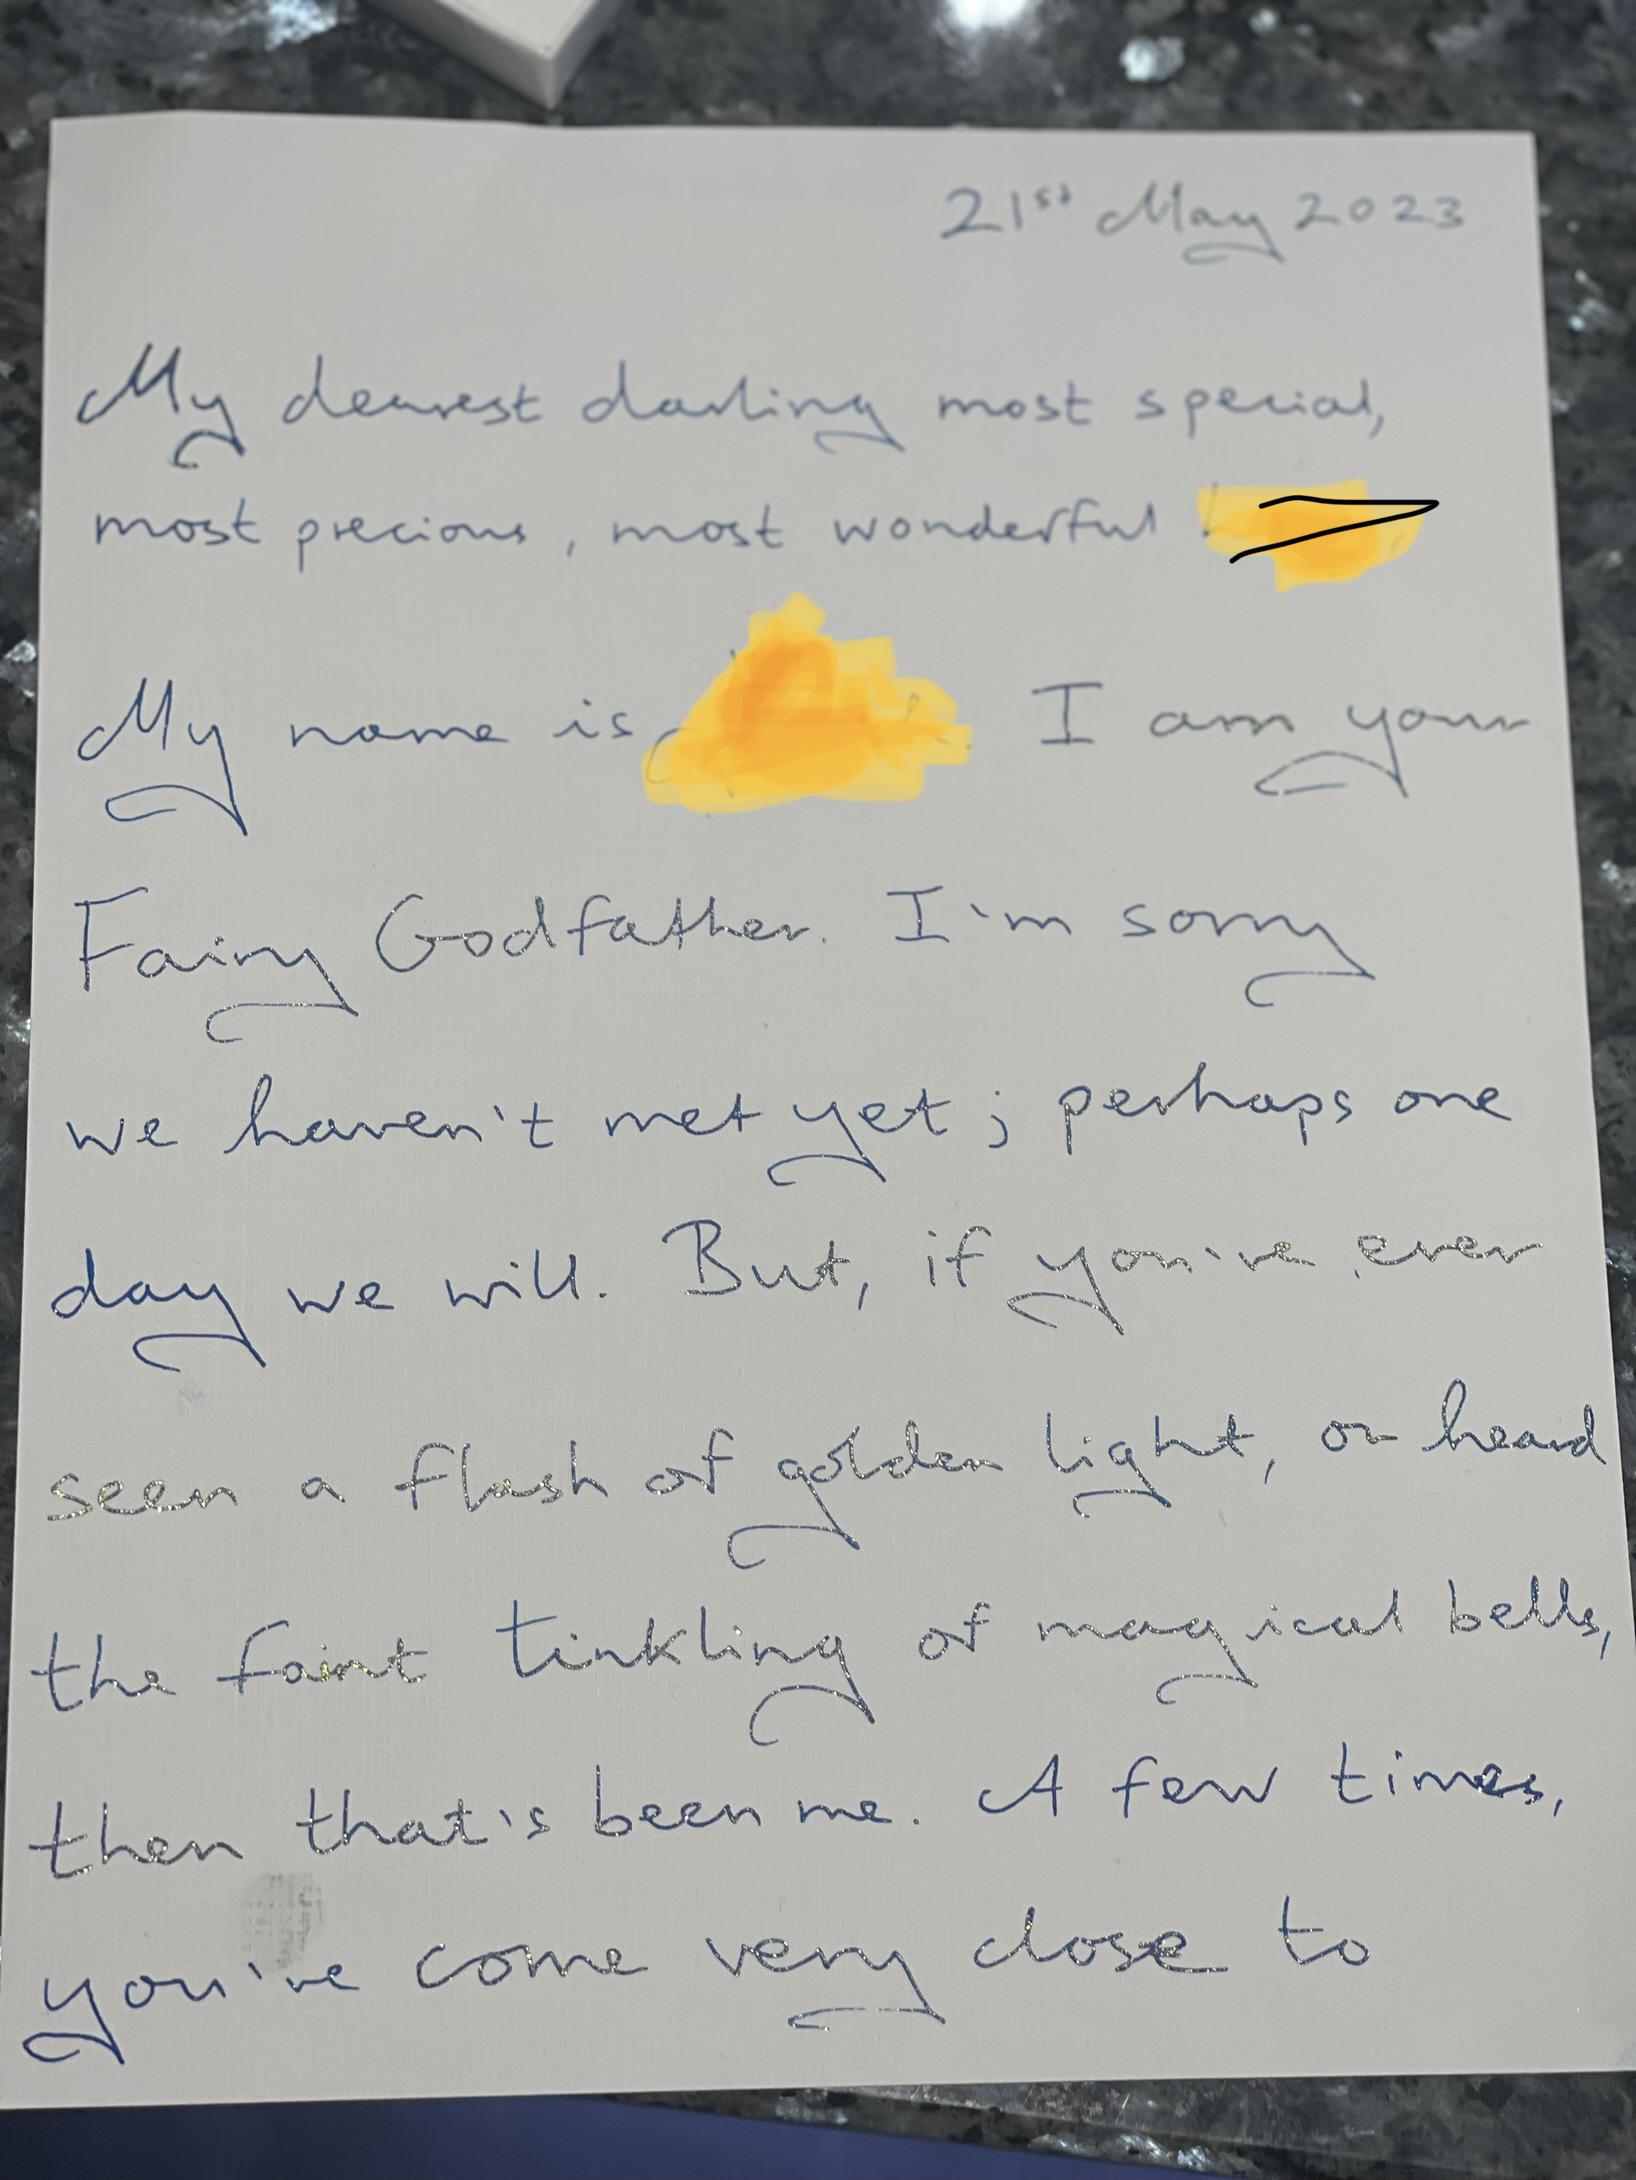 21st May 2023
My dearest darling most special,
most precious, most wonderful
My name is I am your
Fairy Godfather. I'm sorry
we haven't met yet; perhaps one
day we will. But, if you've ever
seen a flash of golden light, or heard
the faint tinkling of magical bells,
then that's been me. A few times,
you've come very close to